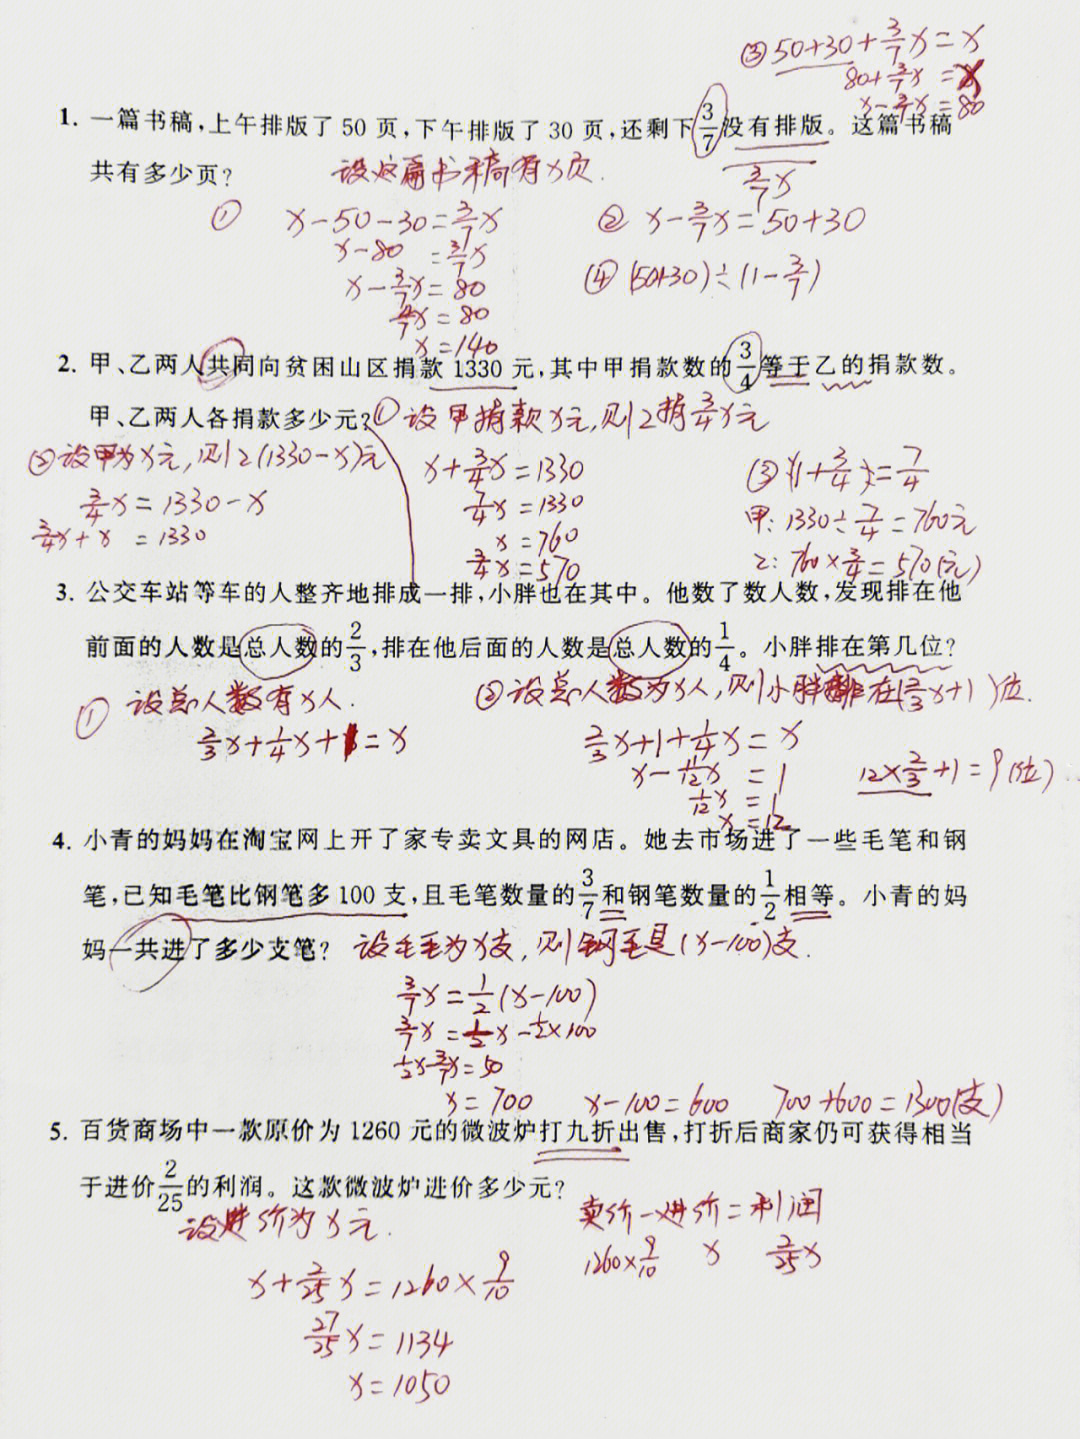 ③ 50+30+3/7x=x
80+3/7x=x
x-3/7x=80
1. 一篇书稿,上午排版了 50 页,下午排版了 30 页,还剩下3/7没有排版。这篇书稿
共有多少页? 设这篇书稿有x页.
3/7x
① x-50-30=3/7x
② x-3/7x=50+30
x-80=3/7x
④ (50+30)÷(1-3/7)
x-3/7x=80
4/7x=80
x=140
2. 甲、乙两人共同向贫困山区捐款 1330 元,其中甲捐款数的3/4等于乙的捐款数。
甲、乙两人各捐款多少元? ①设甲捐款x元,则乙捐3/4x元
②设甲为x元,则乙(1330-x)元
3/4x=1330-x
3/4x+x=1330
x+3/4x=1330
7/4x=1330
x=760
3/4x=570
③ (1+3/4)=7/4
甲: 1330÷7/4=760元
乙: 760×3/4=570(元)
3. 公交车站等车的人整齐地排成一排,小胖也在其中。他数了数人数,发现排在他
前面的人数是总人数的2/3,排在他后面的人数是总人数的1/4。小胖排在第几位?
① 设总人数有x人.
2/3x+1/4x+1=x
②设总人数为x人,则小胖排在(2/3x+1)位.
2/3x+1+1/4x=x
x-11/12x=1
1/12x=1
x=12
12×2/3+1=9(位)
4. 小青的妈妈在淘宝网上开了家专卖文具的网店。她去市场进了一些毛笔和钢
笔,已知毛笔比钢笔多 100 支,且毛笔数量的3/7和钢笔数量的1/2相等。小青的妈
妈一共进了多少支笔? 设毛毛为x支,则钢毛是(x-100)支.
3/7x=1/2(x-100)
3/7x=1/2x-1/2×100
1/2x-3/7x=50
x=700 x-100=600 700+600=1300(支)
5. 百货商场中一款原价为 1260 元的微波炉打九折出售,打折后商家仍可获得相当
于进价2/25的利润。这款微波炉进价多少元?
设进价为x元.
卖价-进价=利润
1260×9/10 x 2/25x
x+2/25x=1260×9/10
27/25x=1134
x=1050